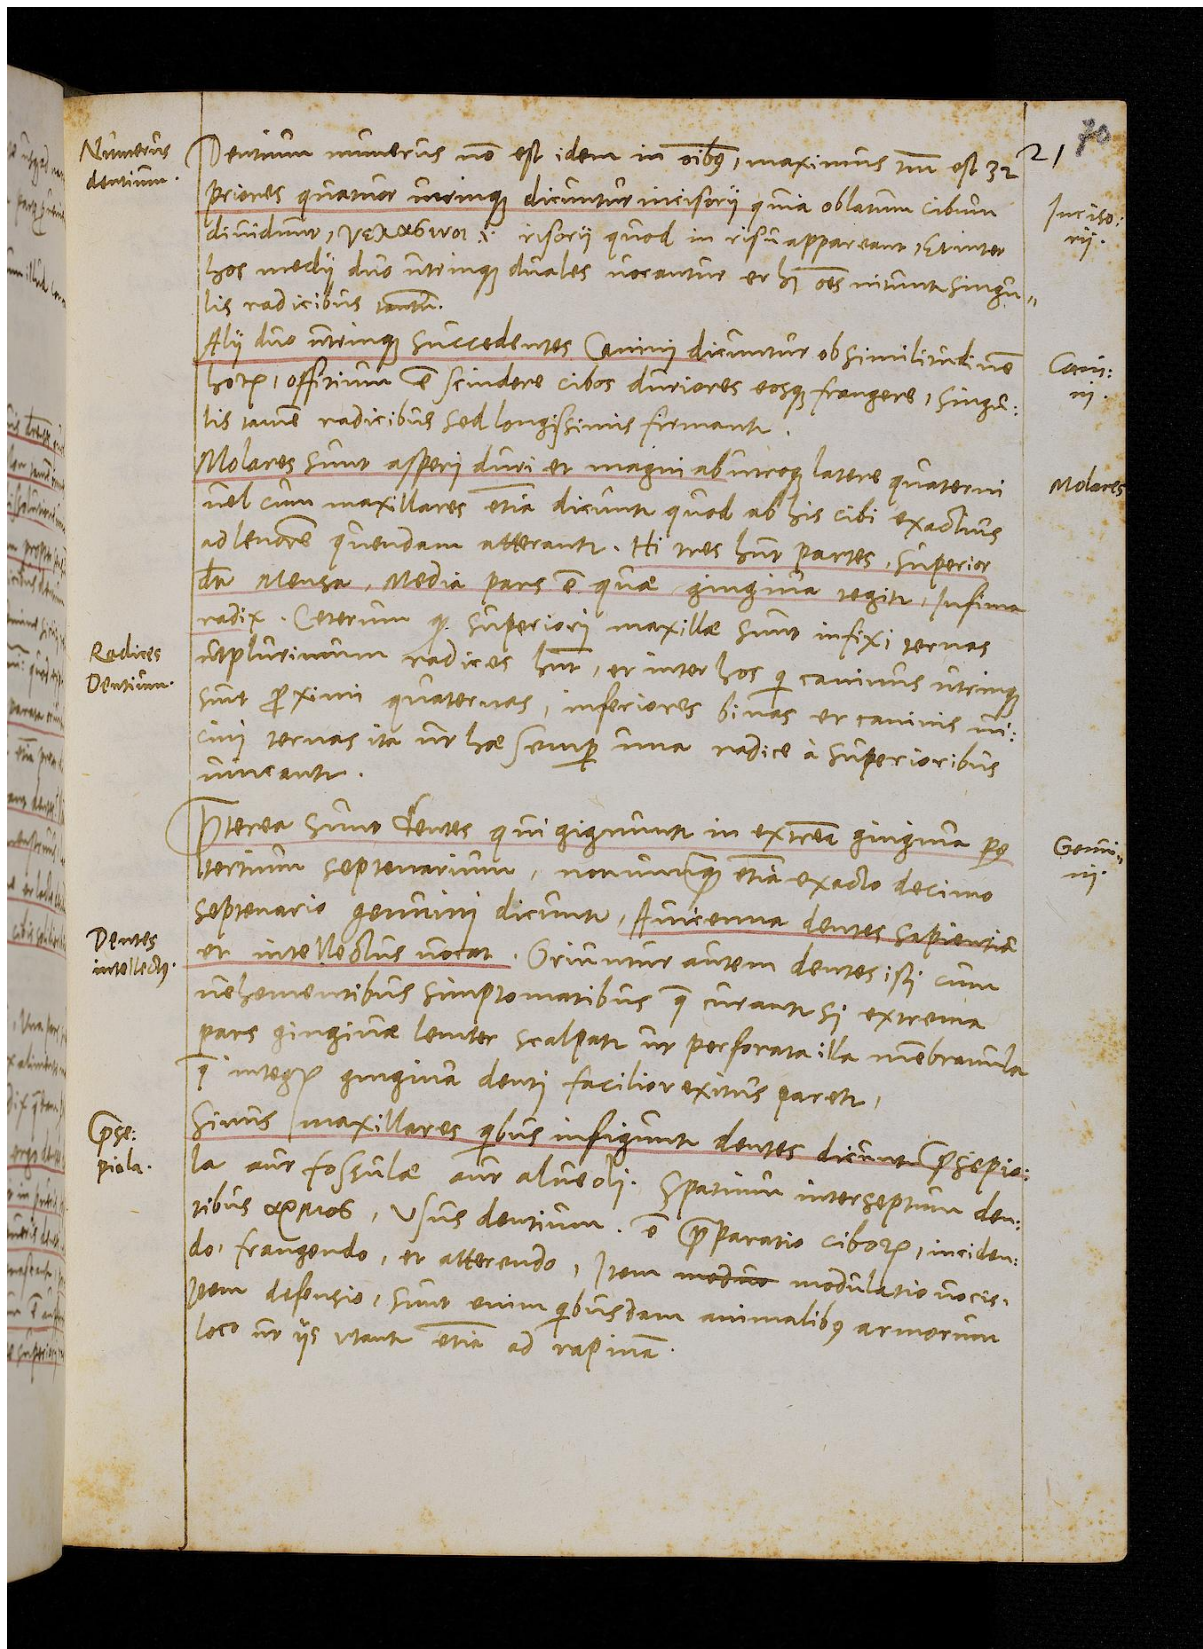 70
21
Numerus
dentium.
Dentium numerus nō est idem in oībꝰ, maximus tn̄ est 32
priores quatuor utrinqꝫ dicuntur incisorij quia oblatum cibum
Inciso:
rij.
diuidunt, γελασινοι .i. risorij quod in risu appareant, Et inter
hos medij duo utrinqꝫ duales uocantur et hi oēs nitunt᷑ singu„
lis radicibus tantū.
Alij duo utrinqꝫ succedentes Canini dicuntur ob similitudinē
Cani:
ni.
horꝝ, offitium ē scindere cibos duriores eosqꝫ frangere, singu:
lis tamē radicibus sed longissimis firmant᷑.
Molares sunt asperi duri et magni ab utroqꝫ latere quaterni
Molares
uel cum maxillares etiā dicunt᷑ quod ab his cibi exactius
ad leuorē quendam atterant᷑. Hi tres hn̄t partes, superior
dr̄ Mensa, Media pars ē quae gingiua tegit᷑, Infima
radix. Ceterum qꝫ superiori maxillae sunt infixi ternas
Radices
Dentium.
utplurimum radices hn̄t, et inter hos qi caninus utrinqꝫ
sunt ꝓximi quaternas, inferiores binas et caninis ui:
cini ternas ita ut hae semꝑ una radice à superioribus
uincant᷑.
Ꝓterea sunt dentes qui gignunt᷑ in extrema gingiua ꝑ
Gemi„
ni.
tertium septenarium, nonunqꝫ etiā exacto decimo
septenario gemini dicunt᷑, Auicenna dentes sapientiæ
Dentes
intellectꝰ.
et intellectus uocat. Oriuntur autem dentes isti cum
uehementibus simptomatibus q̄ curant᷑ si extrema
pars gingiuae leniter scalpat᷑ ut perforata illa mēbranula
q̄ integrꝝ gingiua denti facilior exitus paret᷑,
Sinus maxillares qibus infigunt᷑ dentes dicunt᷑ p̄sepio:
P̄se:
piola.
la aut fossulae aut alueoli. Spatium interseptum den:
tibus αρμος, Usus dentium. ē p̄paratio ciborꝝ, inciden:
do, frangendo, et atterendo, Item modulatio uocis,
Item defensio, sunt enim qibusdam animalibꝰ armorum
loco ut ijs utant᷑ etiā ad rapinā.